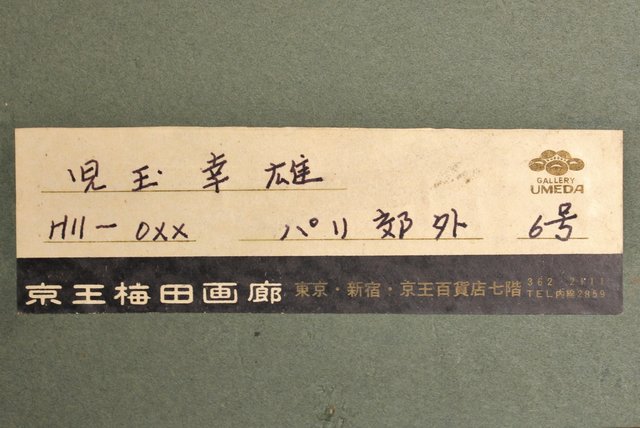 児玉幸雄
GALLERY
UMEDA
H11-0XX パリ郊外 6号
京王梅田画廊 東京・新宿・京王百貨店七階
TEL内線2859